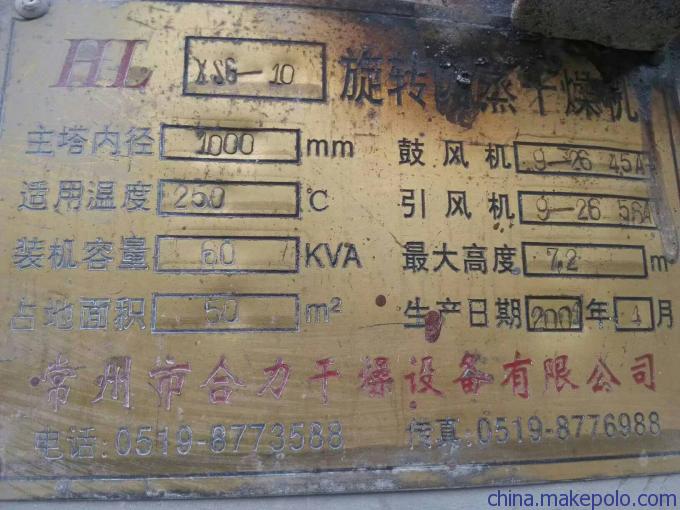 HL XSG-10 旋转闪蒸干燥机
主塔内径 1000 mm 鼓风机 9-26 4.5A
适用温度 250 ℃ 引风机 9-26 5.6A
装机容量 60 KVA 最大高度 7.2 m
占地面积 50 m² 生产日期 2001年 4月
常州市合力干燥设备有限公司
电话:0519-8773588 传真:0519-8776988
china.makepolo.com